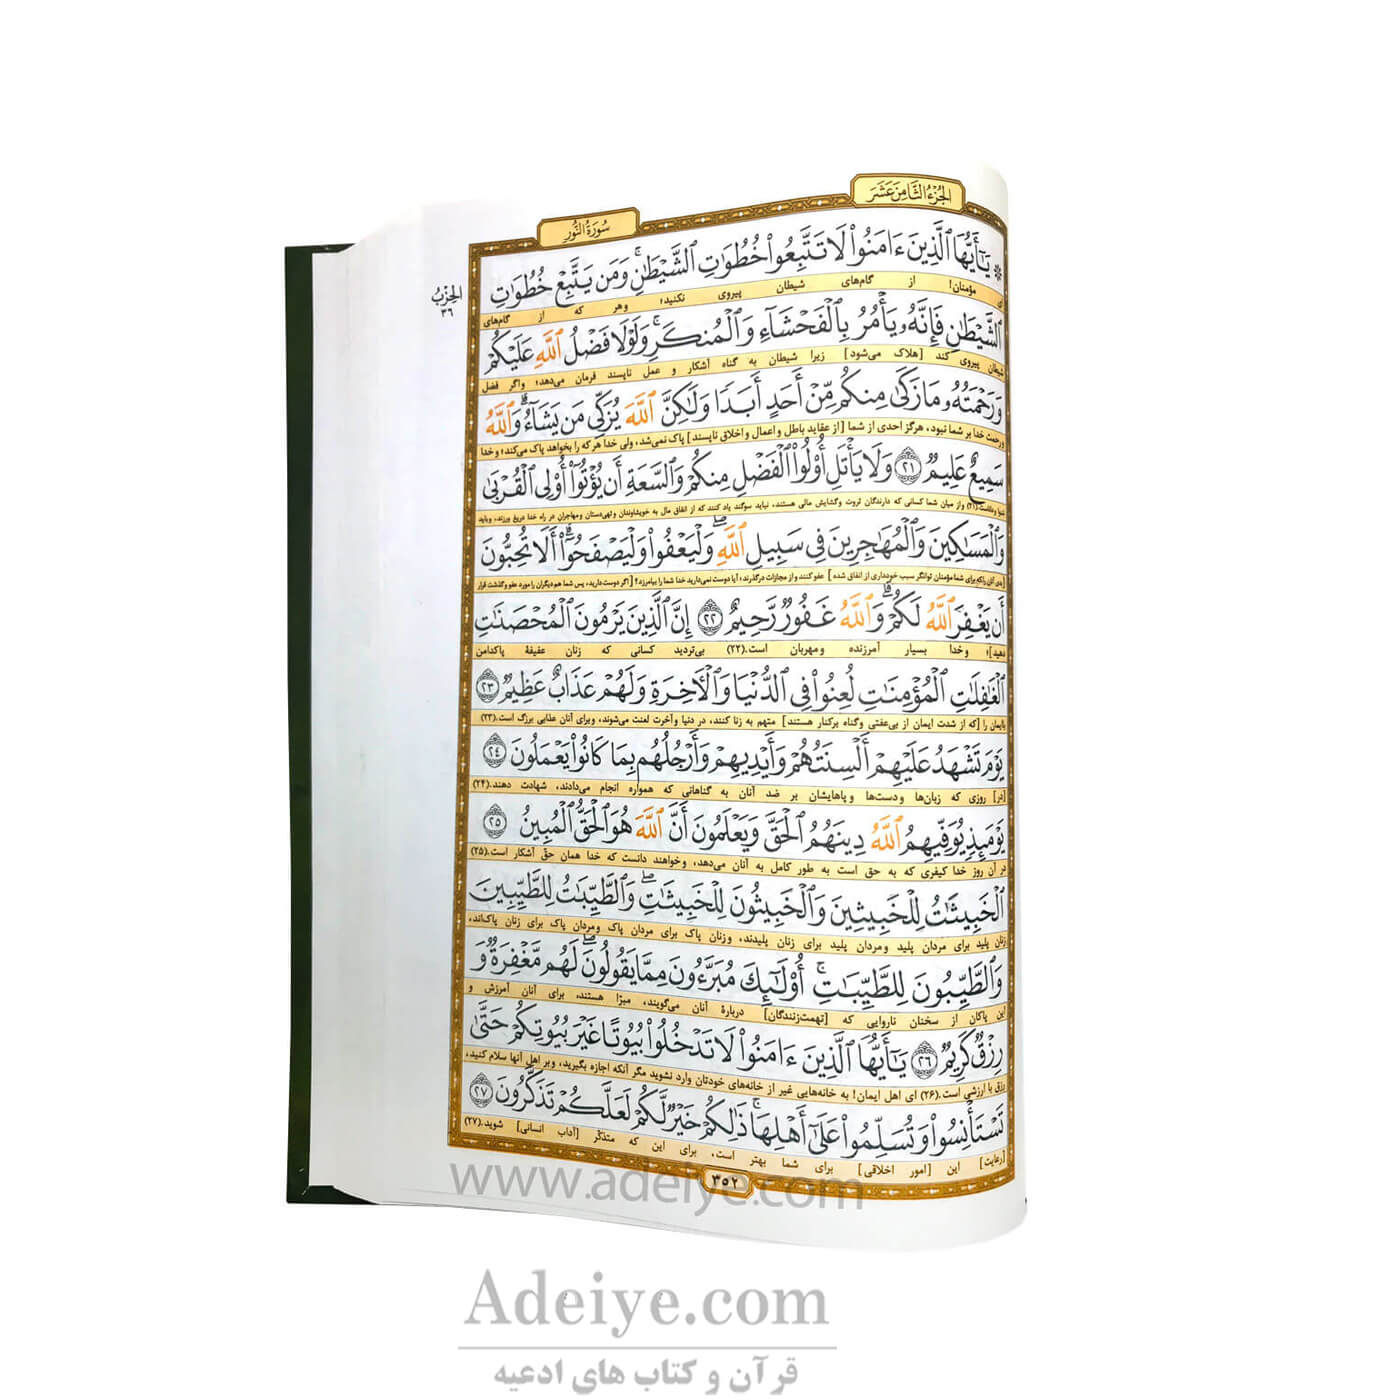 الجُزءُ الثَّامِنَ عَشَرَ
سُورَةُ النُّورِ
الحِزْبُ
٣٦
۞ يَٰٓأَيُّهَا ٱلَّذِينَ ءَامَنُوا۟ لَا تَتَّبِعُوا۟ خُطُوَٰتِ ٱلشَّيْطَٰنِ ۚ وَمَن يَتَّبِعْ خُطُوَٰتِ
ای مؤمنان! از گام‌های شیطان پیروی نکنید؛ و هر که از گام‌های
ٱلشَّيْطَٰنِ فَإِنَّهُۥ يَأْمُرُ بِٱلْفَحْشَآءِ وَٱلْمُنكَرِ ۚ وَلَوْلَا فَضْلُ ٱللَّهِ عَلَيْكُمْ
شیطان پیروی کند [هلاک می‌شود] زیرا شیطان به گناه آشکار و عمل ناپسند فرمان می‌دهد؛ و اگر فضل
وَرَحْمَتُهُۥ مَا زَكَىٰ مِنكُم مِّنْ أَحَدٍ أَبَدًا وَلَٰكِنَّ ٱللَّهَ يُزَكِّى مَن يَشَآءُ ۗ وَٱللَّهُ
و رحمت خدا بر شما نبود، هرگز احدی از شما [از عقاید باطل و اعمال و اخلاق ناپسند] پاک نمی‌شد، ولی خدا هر که را بخواهد پاک می‌کند؛ و خدا
سَمِيعٌ عَلِيمٌ ٢١ وَلَا يَأْتَلِ أُو۟لُوا۟ ٱلْفَضْلِ مِنكُمْ وَٱلسَّعَةِ أَن يُؤْتُوٓا۟ أُو۟لِى ٱلْقُرْبَىٰ
شنوا و داناست.(۲۱) و از میان شما کسانی که دارندگان ثروت و گشایش مالی هستند، نباید سوگند یاد کنند که از انفاق مال به خویشاوندان و تهی‌دستان و مهاجران در راه خدا دریغ ورزند، و باید
وَٱلْمَسَٰكِينَ وَٱلْمُهَٰجِرِينَ فِى سَبِيلِ ٱللَّهِ ۖ وَلْيَعْفُوا۟ وَلْيَصْفَحُوٓا۟ ۗ أَلَا تُحِبُّونَ
[بدی آنان را که برای شما مؤمنان توانگر سبب خودداری از انفاق شده] عفو کنند و از مجازات درگذرند؛ آیا دوست نمی‌دارید خدا شما را بیامرزد؟ [اگر دوست دارید، پس شما هم دیگران را مورد عفو و گذشت قرار
أَن يَغْفِرَ ٱللَّهُ لَكُمْ ۗ وَٱللَّهُ غَفُورٌ رَّحِيمٌ ٢٢ إِنَّ ٱلَّذِينَ يَرْمُونَ ٱلْمُحْصَنَٰتِ
دهید]؛ و خدا بسیار آمرزنده و مهربان است.(۲۲) بی‌تردید کسانی که زنان عفیفهٔ پاکدامن
ٱلْغَٰفِلَٰتِ ٱلْمُؤْمِنَٰتِ لُعِنُوا۟ فِى ٱلدُّنْيَا وَٱلْءَاخِرَةِ وَلَهُمْ عَذَابٌ عَظِيمٌ ٢٣
باایمان را [که از شدت ایمان از بی‌عفتی و گناه برکنار هستند] متهم به زنا کنند، در دنیا و آخرت لعنت می‌شوند، و برای آنان عذابی بزرگ است.(۲۳)
يَوْمَ تَشْهَدُ عَلَيْهِمْ أَلْسِنَتُهُمْ وَأَيْدِيهِمْ وَأَرْجُلُهُم بِمَا كَانُوا۟ يَعْمَلُونَ ٢٤
[در] روزی که زبان‌ها و دست‌ها و پاهایشان بر ضد آنان به گناهانی که همواره انجام می‌دادند، شهادت دهند.(۲۴)
يَوْمَئِذٍ يُوَفِّيهِمُ ٱللَّهُ دِينَهُمُ ٱلْحَقَّ وَيَعْلَمُونَ أَنَّ ٱللَّهَ هُوَ ٱلْحَقُّ ٱلْمُبِينُ ٢٥
در آن روز خدا کیفری که به حق است به طور کامل به آنان می‌دهد، و خواهند دانست که خدا همان حقّ آشکار است.(۲۵)
ٱلْخَبِيثَٰتُ لِلْخَبِيثِينَ وَٱلْخَبِيثُونَ لِلْخَبِيثَٰتِ ۖ وَٱلطَّيِّبَٰتُ لِلطَّيِّبِينَ
زنان پلید برای مردان پلید و مردان پلید برای زنان پلیدند، و زنان پاک برای مردان پاک و مردان پاک برای زنان پاک‌اند،
وَٱلطَّيِّبُونَ لِلطَّيِّبَٰتِ ۚ أُو۟لَٰٓئِكَ مُبَرَّءُونَ مِمَّا يَقُولُونَ ۖ لَهُم مَّغْفِرَةٌ وَ
این پاکان از سخنان ناروایی که [تهمت‌زنندگان] دربارهٔ آنان می‌گویند، مبرّا هستند، برای آنان آمرزش و
رِزْقٌ كَرِيمٌ ٢٦ يَٰٓأَيُّهَا ٱلَّذِينَ ءَامَنُوا۟ لَا تَدْخُلُوا۟ بُيُوتًا غَيْرَ بُيُوتِكُمْ حَتَّىٰ
رزق با ارزشی است.(۲۶) ای اهل ایمان! به خانه‌هایی غیر از خانه‌های خودتان وارد نشوید مگر آنکه اجازه بگیرید، و بر اهل آنها سلام کنید،
تَسْتَأْنِسُوا۟ وَتُسَلِّمُوا۟ عَلَىٰٓ أَهْلِهَا ۚ ذَٰلِكُمْ خَيْرٌ لَّكُمْ لَعَلَّكُمْ تَذَكَّرُونَ ٢٧
[رعایت] این [امور اخلاقی] برای شما بهتر است، برای این که متذکّر [آداب انسانی] شوید.(۲۷)
٣٥٢
www.adeiye.com
Adeiye.com
قرآن و کتاب های ادعیه